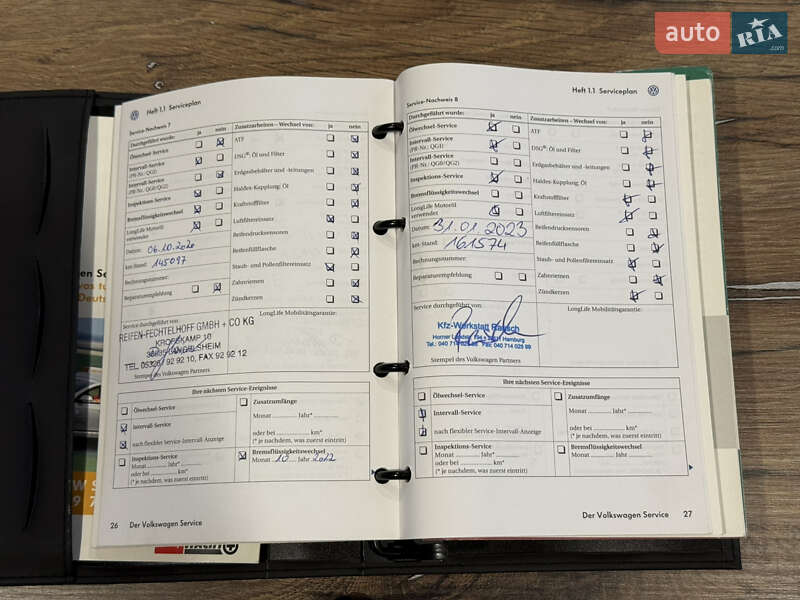 auto RIA
.com
Heft 1.1 Serviceplan
Service-Nachweis 7
Durchgeführt wurde: ja nein
Ölwechsel-Service
Intervall-Service
(PR-Nr.: QG1)
Intervall-Service
(PR-Nr.: QG0/QG2)
Inspektions-Service
Bremsflüssigkeitswechsel
LongLife Motoröl
verwendet
Datum: 06.10.2020
km-Stand: 145097
Rechnungsnummer:
Reparaturempfehlung
Zusatzarbeiten – Wechsel von: ja nein
ATF
DSG®: Öl und Filter
Erdgasbehälter und -leitungen
Haldex-Kupplung: Öl
Kraftstofffilter
Luftfiltereinsatz
Reifendrucksensoren
Reifenfüllflasche
Staub- und Pollenfiltereinsatz
Zahnriemen
Zündkerzen
Service durchgeführt von:
LongLife Mobilitätsgarantie:
REIFEN-FECHTELHOFF GMBH + CO KG
TEL 05326/ 92 92 10, FAX 92 92 12
Stempel des Volkswagen Partners
Ihre nächsten Service-Ereignisse
Ölwechsel-Service
Intervall-Service
nach flexibler Service-Intervall-Anzeige
Inspektions-Service
Monat Jahr*
oder bei km*
(* je nachdem, was zuerst eintritt)
Zusatzumfänge
Monat Jahr*
oder bei km*
(* je nachdem, was zuerst eintritt)
Bremsflüssigkeitswechsel
Monat 10 Jahr 2022
26 Der Volkswagen Service
Heft 1.1 Serviceplan
Service-Nachweis 8
Durchgeführt wurde: ja nein
Ölwechsel-Service
Intervall-Service
(PR-Nr.: QG1)
Intervall-Service
(PR-Nr.: QG0/QG2)
Inspektions-Service
Bremsflüssigkeitswechsel
LongLife Motoröl
verwendet
Datum: 31.01.2023
km-Stand: 161574
Rechnungsnummer:
Reparaturempfehlung
Zusatzarbeiten – Wechsel von: ja nein
ATF
DSG®: Öl und Filter
Erdgasbehälter und -leitungen
Haldex-Kupplung: Öl
Kraftstofffilter
Luftfiltereinsatz
Reifendrucksensoren
Reifenfüllflasche
Staub- und Pollenfiltereinsatz
Zahnriemen
Zündkerzen
Service durchgeführt von:
LongLife Mobilitätsgarantie:
Kfz-Werkstatt
Horner Hamburg
Tel.: 040 714 Fax: 040 714 025 99
Stempel des Volkswagen Partners
Ihre nächsten Service-Ereignisse
Ölwechsel-Service
Intervall-Service
nach flexibler Service-Intervall-Anzeige
Inspektions-Service
Monat Jahr*
oder bei km*
(* je nachdem, was zuerst eintritt)
Zusatzumfänge
Monat Jahr*
oder bei km*
(* je nachdem, was zuerst eintritt)
Bremsflüssigkeitswechsel
Monat Jahr
Der Volkswagen Service 27